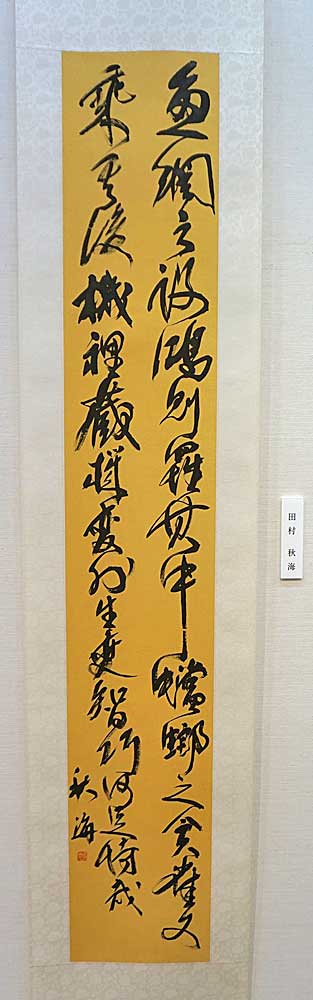 魚網之設鴻則羅其中螳螂之貪雀又
乗其後機裡蔵機変外生変智巧何足恃哉
秋海
田村 秋海